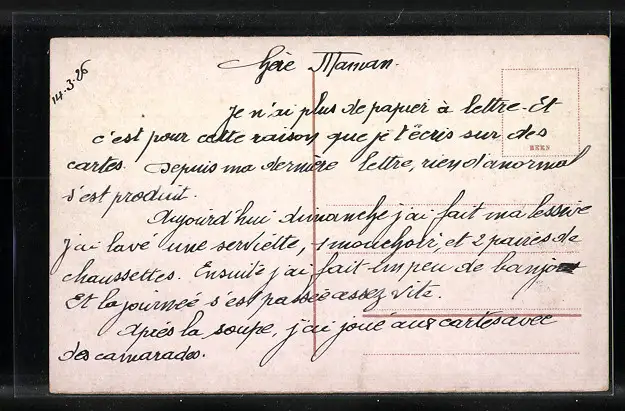 14.3.26
Chère Maman.
Je n'ai plus de papier à lettre. Et
c'est pour cette raison que je t'écris sur des
cartes. Depuis ma dernière lettre, rien d'anormal
s'est produit.
Aujourd'hui dimanche j'ai fait ma lessive
j'ai lavé une serviette, 1 mouchoir, et 2 paires de
chaussettes. Ensuite j'ai fait un peu de banjo
Et la journée s'est passée assez vite.
Après la soupe, j'ai joué aux cartes avec
des camarades.
BERN